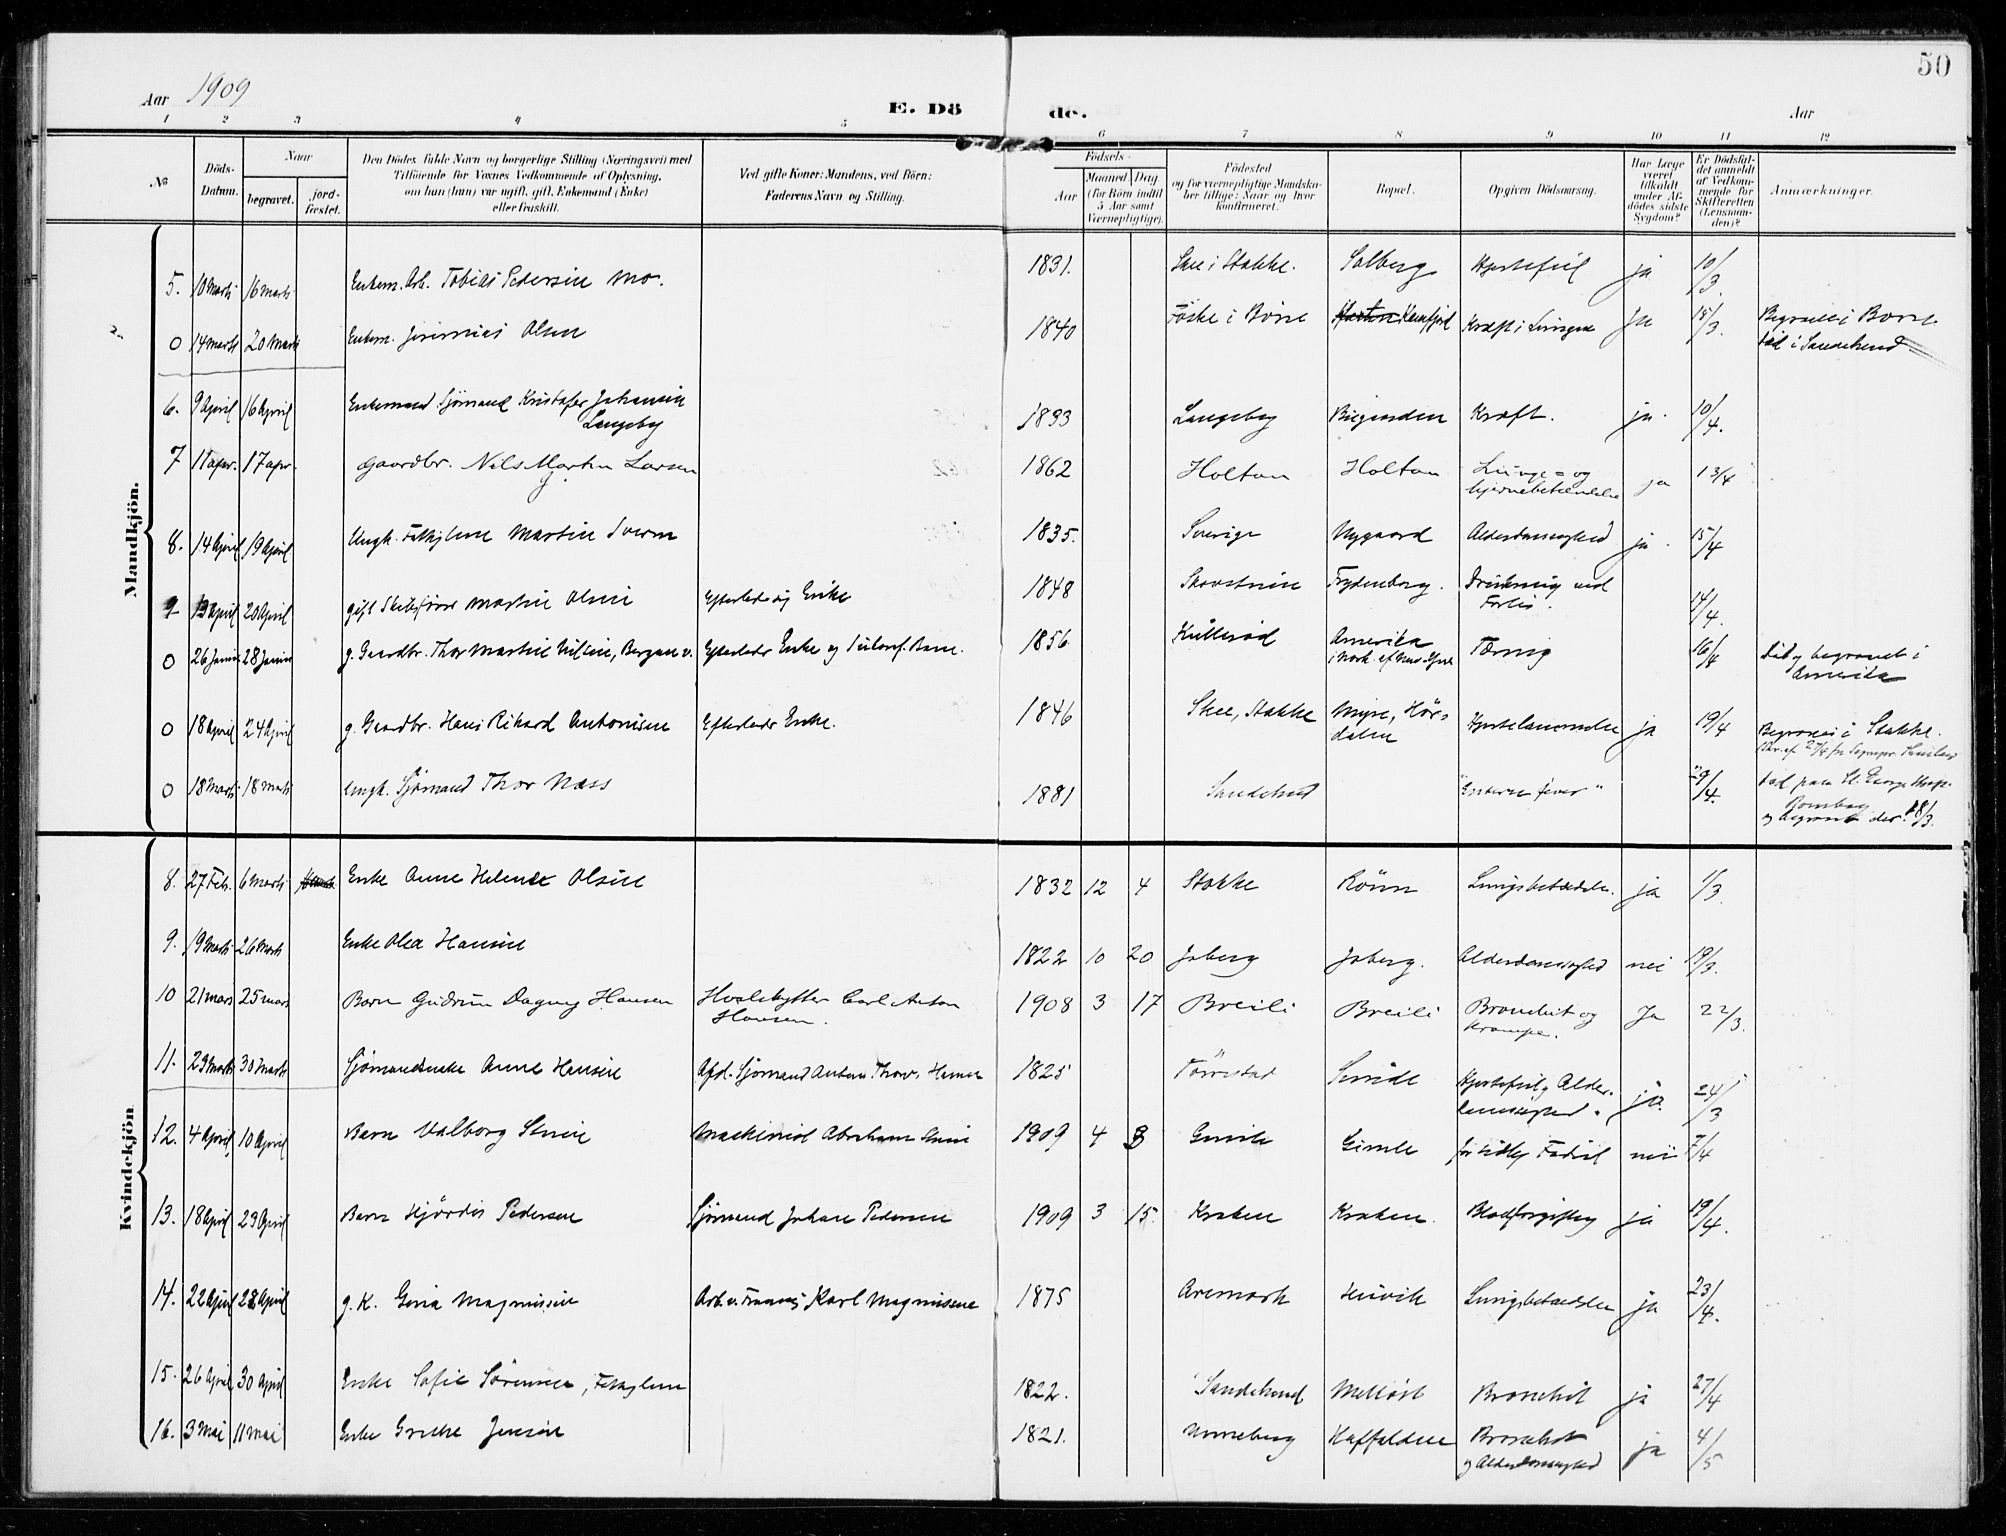 50
Aar 1909
E. Dö de.
Aar
1 2 3 4 5 6 7 8 9 10 11 12
No
Döds-Datum.
Naar
begravet.
jord-fæstet.
Den Dödes fulde Navn og borgerlige Stilling (Næringsvei) med
Tilföiende for Voxnes Vedkommende af Oplysning,
om han (hun) var ugift, gift, Enkemand (Enke)
eller fraskilt.
Ved gifte Koner: Mandens, ved Börn:
Faderens Navn og Stilling.
Födsels-
Aar
Maaned. Dag
(for Börn indtil
5 Aar samt
Værnepligtige).
Födested
og for værnepligtige Mandska-
ber tillige: Naar og hvor
konfirmeret.
Bopæl.
Opgiven Dödsaarsag.
Har Læge
været
tilkaldt
under Af-
dödes sidste
Sygdom?
Er Dödsfal-
det anmeldt
af Vedkom-
mende for
Skifteretten
(Lensman-
den)?
Anmærkninger.
Mandkjön.
5. 10 Marts 16 Marts Enkem. Arb. Tobias Pedersen Mo. 1831. Skee i Stokke. Solberg Hjertefeil ja 10/3
0 14 Marts 20 Marts Enkem. Jeremias Olsen 1840 i Borre Kræft i Ja 15/3. Begravet i Borre
död i Sandeherred
6. 9 April 16 April Enkemand Sjömand Kristofer Johansen
Langeby 1833 Langeby Kræft. ja. 10/4.
7 11 apr. 17 apr. Gaardbr. Nils Martin Larsen 1862 Holtan Holtan Lunge= og
hjernebetændelse ja 13/4
8. 14 April 19 April Ungk. Fattiglem Martin 1835. Sverige Nygaard Alderdomssvaghed ja. 15/4
9 13 April 20 April gift Skibsförer Martin Olsen Efterlader sig Enke 1848 Frydenborg. Drukning ved
Forlis. 14/4.
0 26 28 g. Gaardbr. Thor Martin Nilsen, Efterlader Enke og Barn. 1856 Kullerød Amerika
Tæring 16/4 död og begravet i
Amerika
0 18 April 24 April g. Gaardbr. Hans Rikard Antonisen Efterlader Enke. 1846 Skee, Stokke Myre, Hörs-
dalen Hjertelammelse ja 19/4 Begraves i Stokke.
0 18 Marts 18 Marts ungk. Sjömand Thor Næss 1881 Sandeherred "Enteric fever" 29/4. död paa St. George Hosp.
Bombay
og begravet der 18/3.
Kvindekjön
8. 27 Feb. 6 Marts Enke Anne Helene Olsen 1832 12 4 Stokke Rönn Lungebetændelse. ja 1/3.
9. 19 Marts 26 Marts Enke Olea Hansen 1822 10 20 Joberg Joberg. Alderdomssvaghed nei 19/3.
10 21 mars 25 mars Barn Gudrun Dagny Hansen Hvalskytter Carl Anton
Hansen. 1908 3 17 Breili Breili Bronchit og
Krampe. Ja 22/3.
11. 23 Marts 30 Marts Sjömandsenke Anne Hansen Afd. Sjömand Anton Thorv. Hansen 1825 Hjertefeil og Alder-
domssvaghed. ja. 24/3
12. 4 April 10 April Barn Valborg Maskinist Abraham 1909 4 3 Gimle Gimle for tidlig Födsel nei 7/4
13. 18 April 23 April Barn Hjördis Pedersen Sjömand Johan Pedersen 1909 3 15. Kraken Kraken. Blodforgiftng ja 19/4.
14. 22 April 28 April g. K. Gina Magnussen Karl Magnussen 1875 Aremark Lungebetændelse ja 23/4.
15. 26 April 30 April Enke Sofie Sörensen, Fattiglem 1822. Sandeherred Bronchit ja 27/4
16. 3 Mai 11 mai Enke Grethe Jensen 1821. Unneberg Kaffalden Bronchit
og Alderdomssvaghed ja 4/5